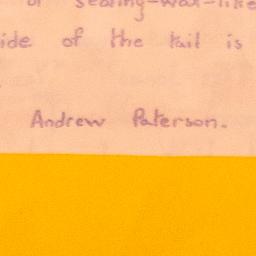 of sealing-wax-like
ide of the tail is
Andrew Paterson.